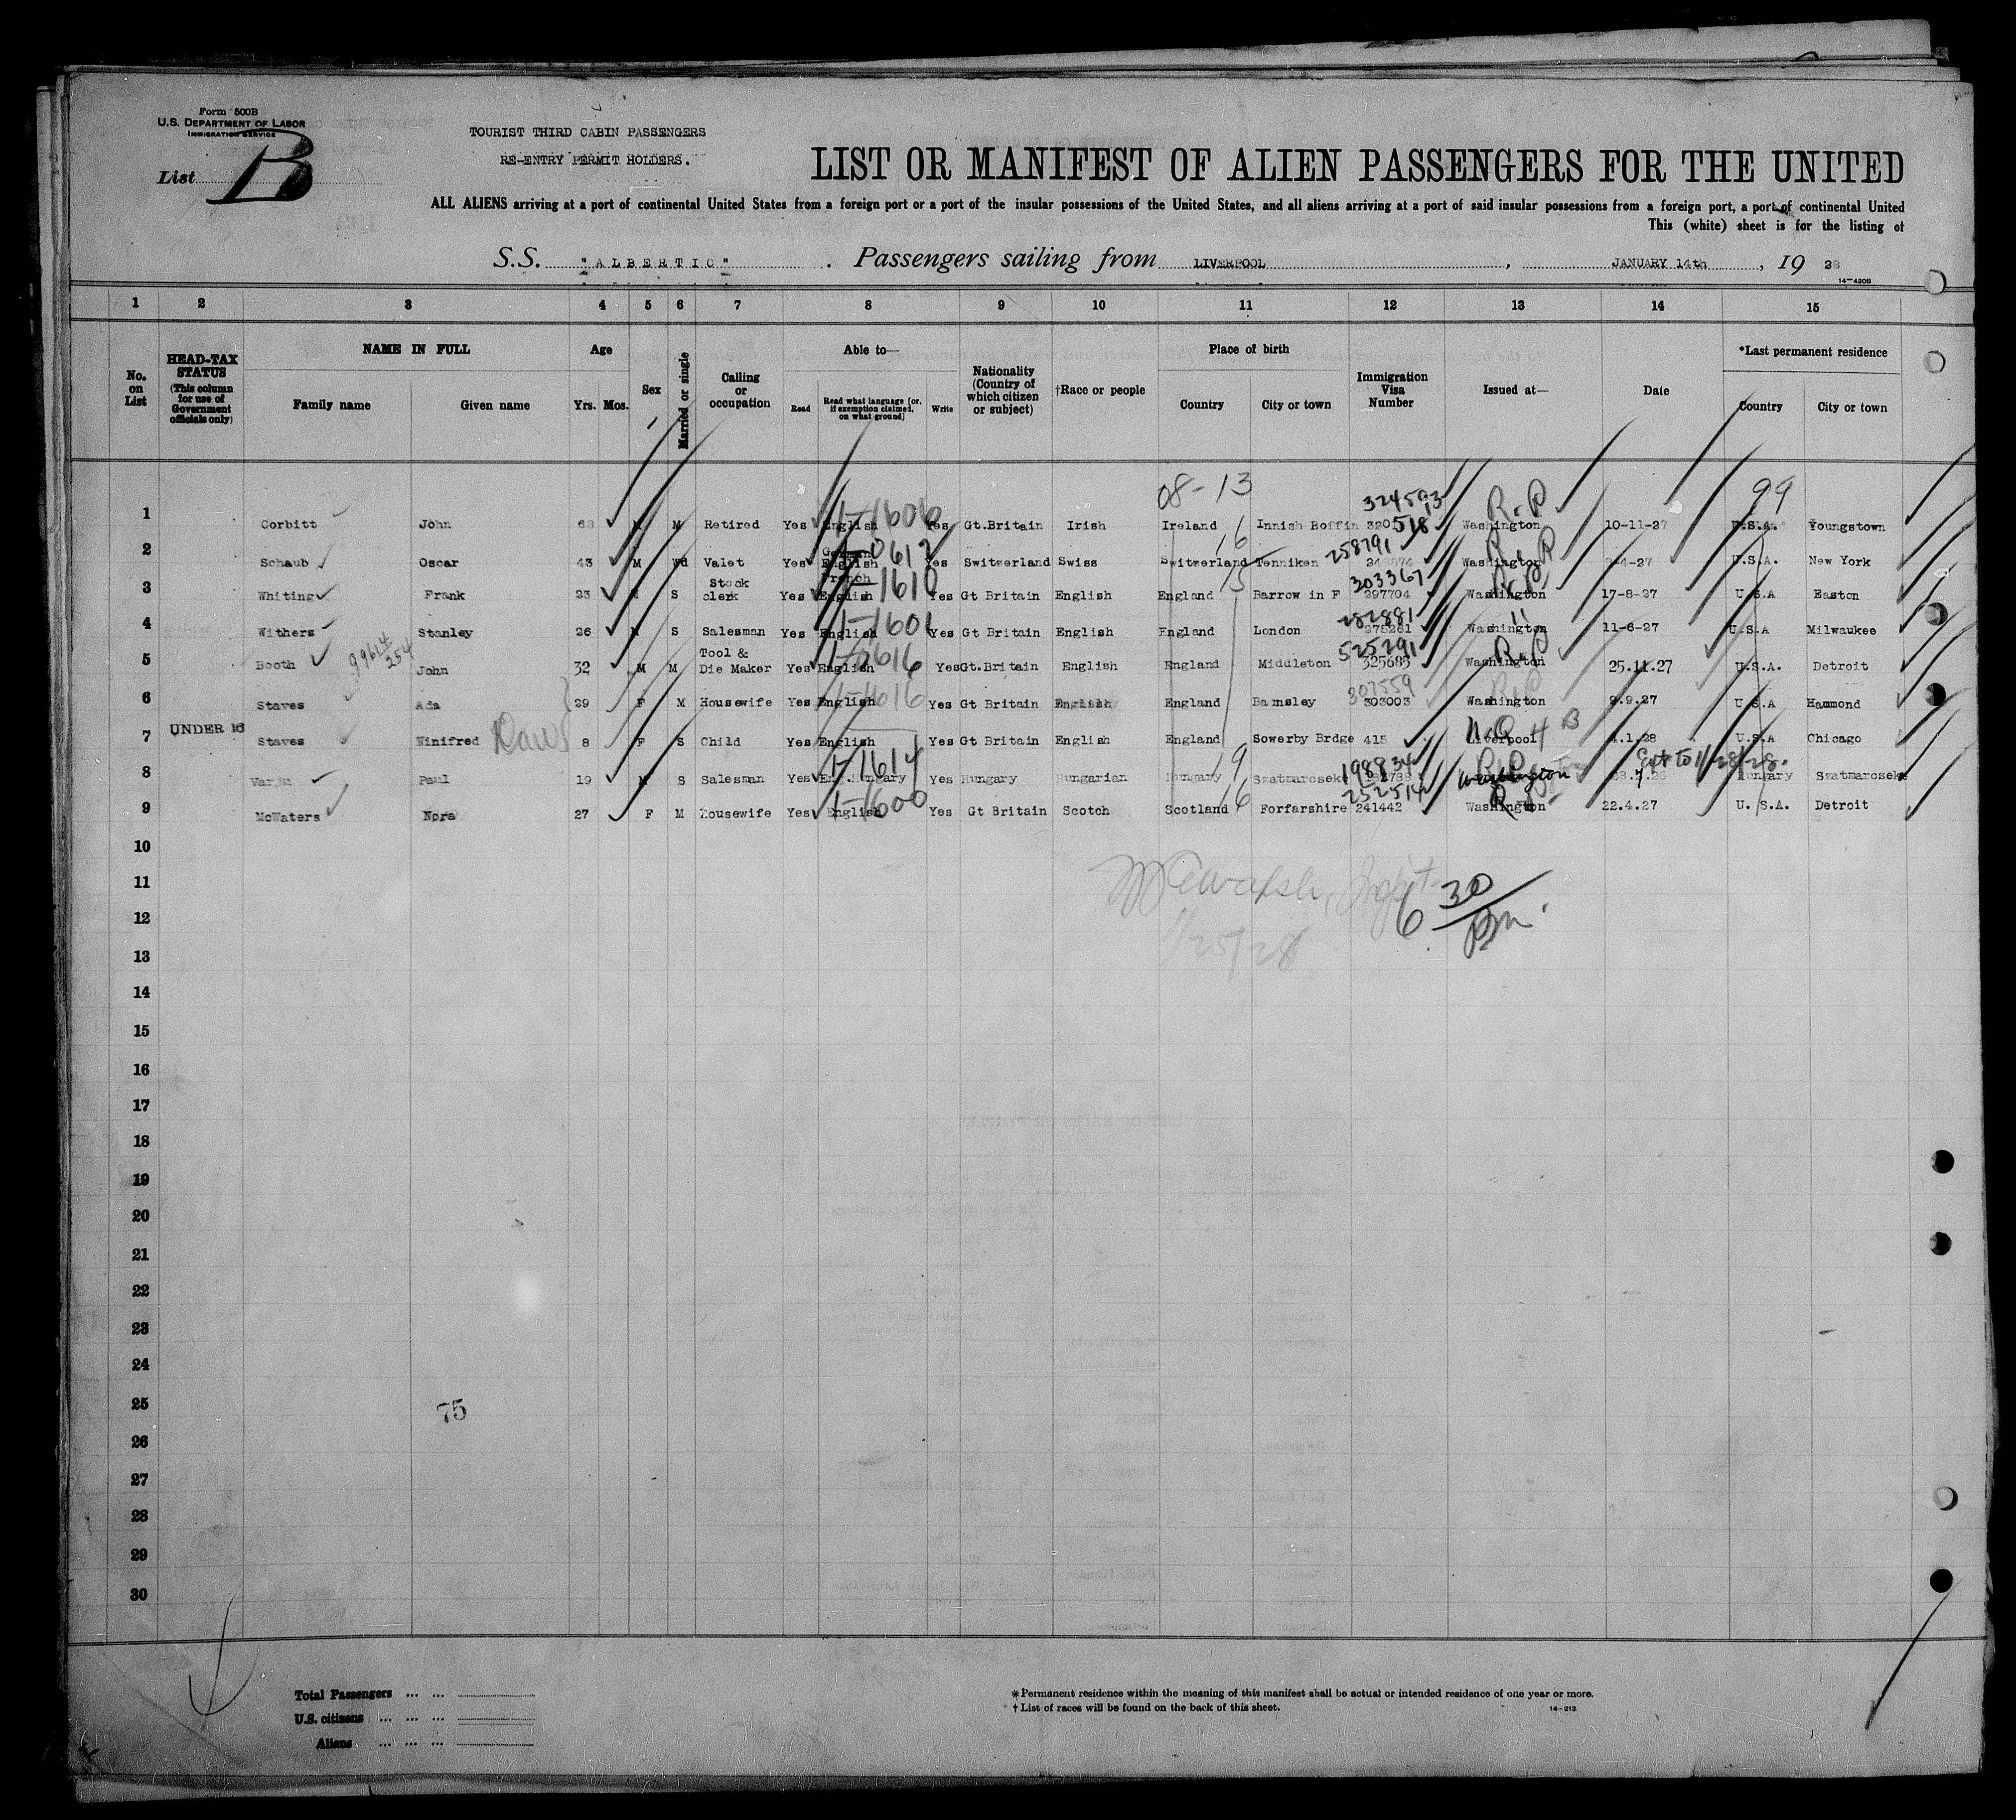 Form 500B
U.S. DEPARTMENT OF LABOR
IMMIGRATION SERVICE
List B
TOURIST THIRD CABIN PASSENGERS
RE-ENTRY PERMIT HOLDERS.
LIST OR MANIFEST OF ALIEN PASSENGERS FOR THE UNITED
ALL ALIENS arriving at a port of continental United States from a foreign port or a port of the insular possessions of the United States, and all aliens arriving at a port of said insular possessions from a foreign port, a port of continental United
This (white) sheet is for the listing of
S.S. "ALBERTIC". Passengers sailing from LIVERPOOL, JANUARY 14th, 19 28
14-4208
1 2 3 4 5 6 7 8 9 10 11 12 13 14 15
No. on List
HEAD-TAX STATUS (This column for use of Government officials only)
NAME IN FULL
Family name Given name
Age
Yrs. Mos.
Sex
Married or single
Calling or occupation
Able to—
Read Read what language [or, if exemption claimed, on what ground] Write
Nationality (Country of which citizen or subject)
†Race or people
Place of birth
Country City or town
Immigration Visa Number
Issued at—
Date
*Last permanent residence
Country City or town
08-13 324593 R.P 99
1-1606
1 Corbitt John 68 M M Retired Yes English Yes Gt.Britain Irish Ireland Innish Boffin 320518 Washington 10-11-27 U.S.A. Youngstown
16 258791
2 Schaub Oscar 43 M Wd Valet Yes German English French Yes Switzerland Swiss Switzerland Tenniken Washington 27 U.S.A. New York
1-1610 15 303367
3 Whiting Frank 23 M S Stock clerk Yes English Yes Gt Britain English England Barrow in F 297704 Washington 17-8-27 U.S.A Easton
1-1601 282881
4 Withers Stanley 26 M S Salesman Yes English Yes Gt Britain English England London 275281 Washington 11-6-27 U.S.A Milwaukee
99614 254 525291 R.P
5 Booth John 32 M M Tool & Die Maker Yes English Yes Gt.Britain English England Middleton 325685 Washington 25.11.27 U.S.A. Detroit
1-1616 307559 R.P
6 Staves Ada 29 F M Housewife Yes English Yes Gt Britain English England Barnsley 303003 Washington 9.9.27 U.S.A Hammond
7 UNDER 16 Staves Winifred 8 F S Child Yes English Yes Gt Britain English England Sowerby Brdge 415 Liverpool 4.1.28 U.S.A Chicago
N.Q 4 B
1-1614 19 198834 Ext to 1/28/28.
8 Paul 19 M S Salesman Yes Eng.Hungary Yes Hungary Hungarian Hungary Szatmarcseke Washington Hungary Szatmarcseke
1-1600 16 252514
9 McWaters Nora 27 F M Housewife Yes English Yes Gt Britain Scotch Scotland Forfarshire 241442 Washington 22.4.27 U.S.A. Detroit
10
11
6 30/pm.
12
1/25/28
13
14
15
16
17
18
19
20
21
22
23
24
25
75
26
27
28
29
30
Total Passengers ... ...
U.S. citizens ... ... ...
Aliens ... ... ...
*Permanent residence within the meaning of this manifest shall be actual or intended residence of one year or more.
†List of races will be found on the back of this sheet.
14-213